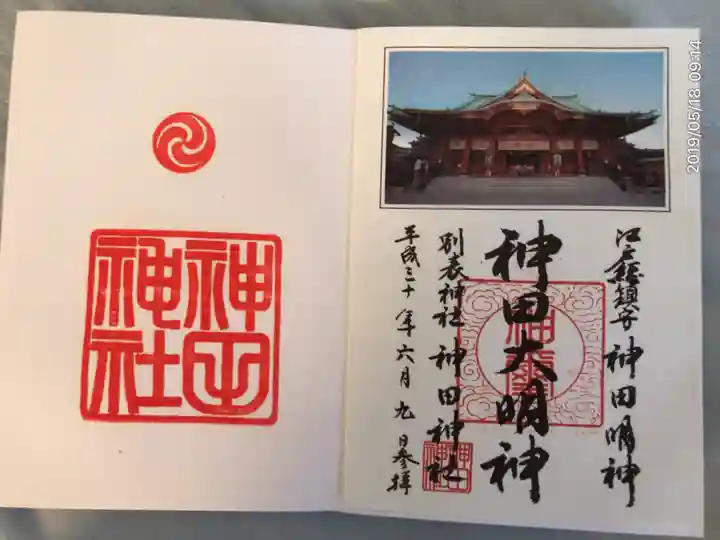 江戸総鎮守 神田明神
神田大明神
別表神社 神田神社
平成三十年六月九日参拝
神田
神社
神田
神社
2019/05/18 09:14